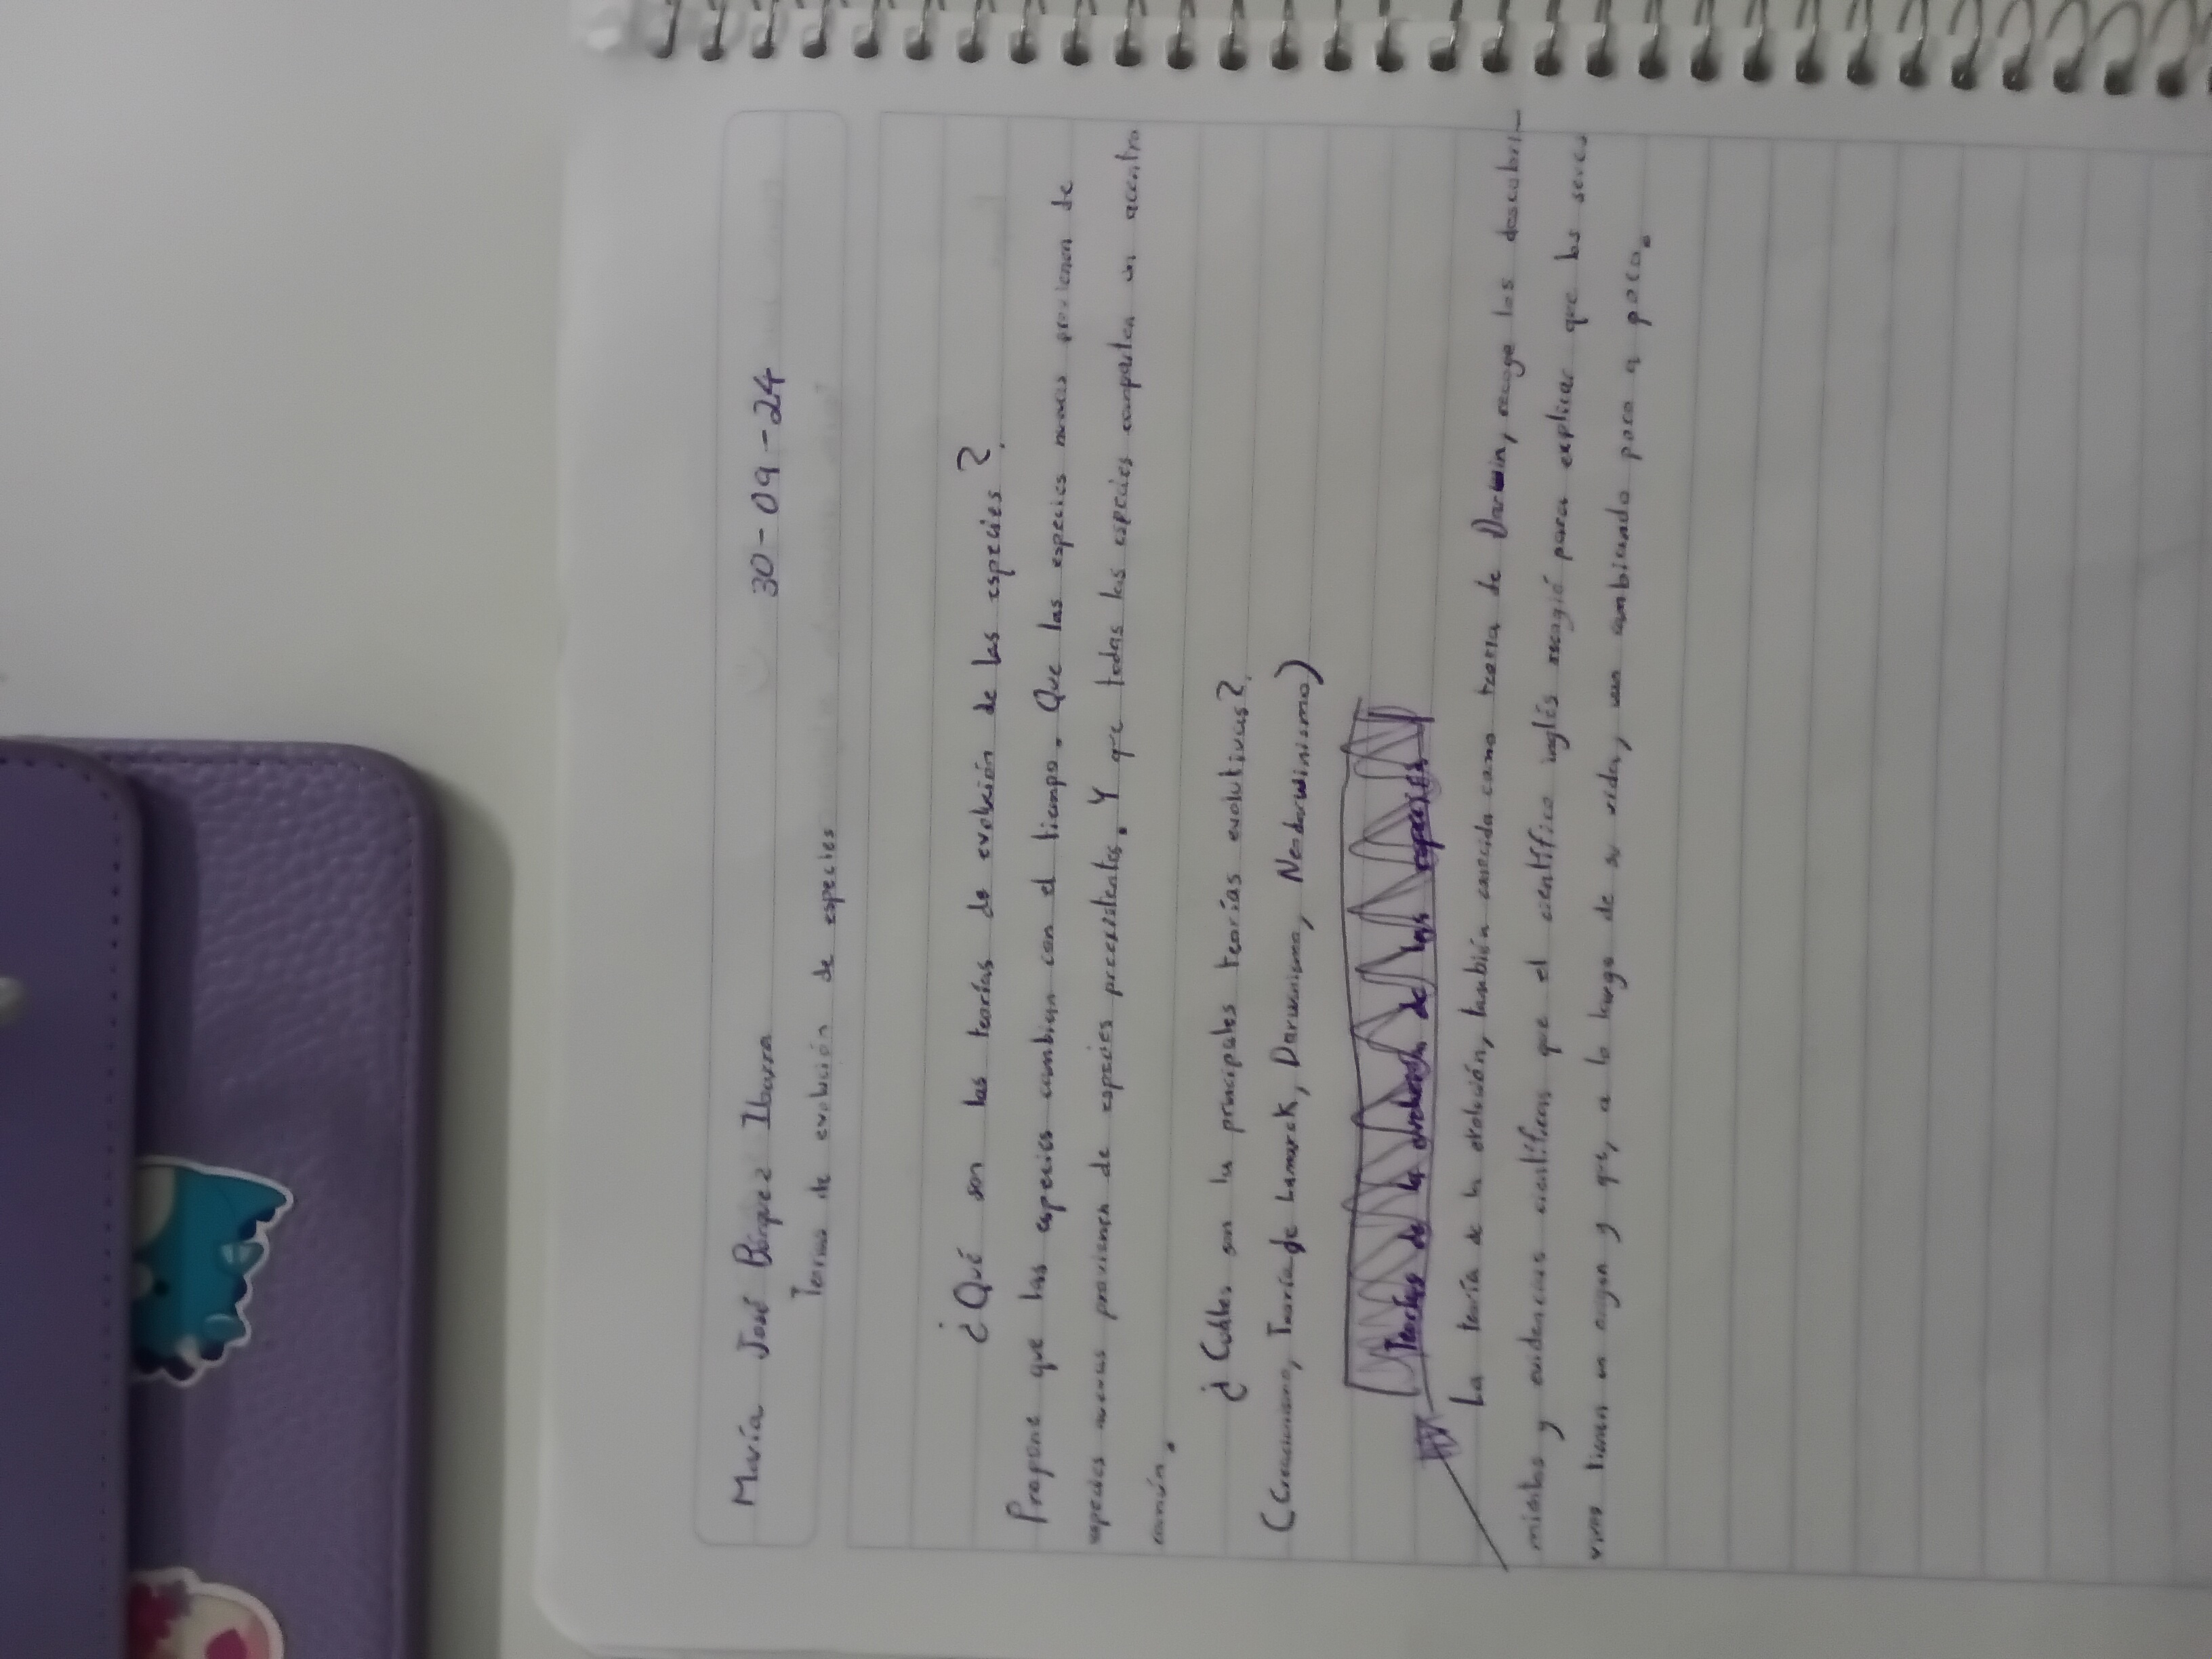 María José Bórquez Ibarra 30-09-24
Teorias de evolución de especies
¿Qué son las teorías de evolución de las especies?
Propone que las especies cambian con el tiempo. Que las especies nuevas provienen de
especies nuevas provienen de especies preexistentes. Y que todas las especies comparten un
común.
¿Cuáles son la principales teorías evolutivas?
(Creacionismo, Teoría de Lamarck, Darwinismo, Neodarwinismo)
Teorías de la evolución de las especies
La teoría de la evolución, también conocida como teoria de Darwin, recoge los descubri-
mientos y evidencias científicas que el científico inglés recogió para explicar que los seres
vivos tienen un origen y que, a lo largo de su vida, van cambiando poco a poco.